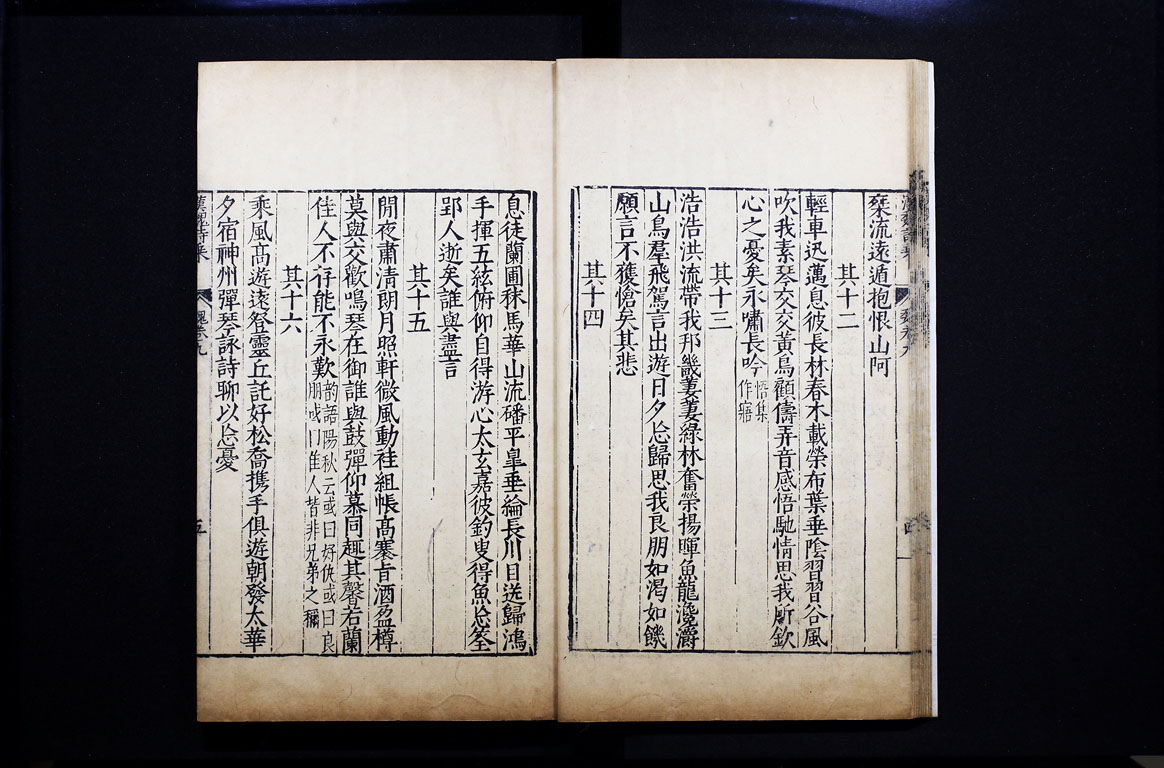 棄流遠遁抱恨山阿
其十二
輕車迅邁息彼長林春木載榮布葉垂陰習習谷風
吹我素琴交交黃鳥顧儔弄音感悟馳情思我所欽
心之憂矣永嘯長吟悟集作寤
其十三
浩浩洪流帶我邦畿萋萋綠林奮榮揚暉魚龍瀺灂
山鳥羣飛駕言出遊日夕忘歸思我良朋如渴如饑
願言不獲愴矣其悲
其十四
息徒蘭圃秣馬華山流磻平皐垂綸長川目送歸鴻
手揮五絃俯仰自得游心太玄嘉彼釣叟得魚忘筌
郢人逝矣誰與盡言
其十五
閒夜肅清朗月照軒微風動袿組帳高褰旨酒盈樽
莫與交歡鳴琴在御誰與鼓彈仰慕同趣其馨若蘭
佳人不存能不永歎韵語陽秋云或曰好仇或曰良朋或曰佳人皆非兄弟之稱
其十六
乘風高遊遠登靈丘託好松喬携手俱遊朝發太華
夕宿神州彈琴詠詩聊以忘憂
漢魏詩乘
魏卷九
五
漢魏詩乘
魏卷九
四